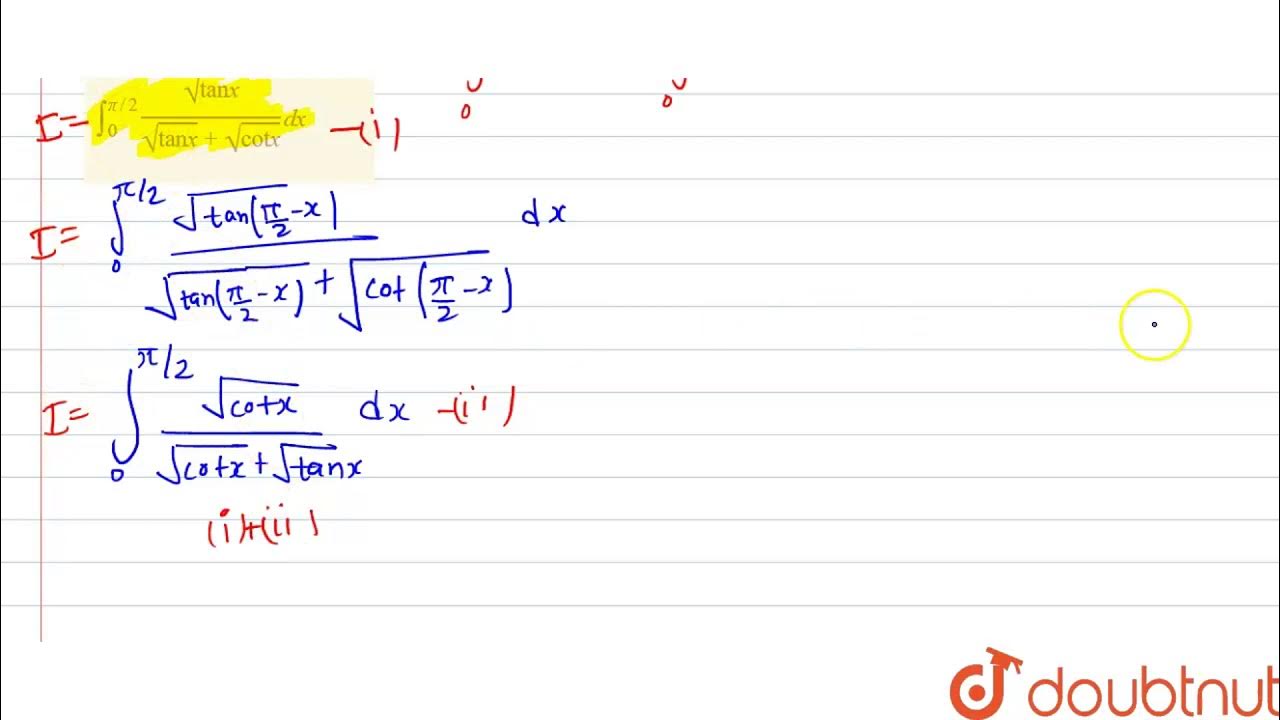 0 0
I= ∫₀^{π/2} √tanx / (√tanx + √cotx) dx -(i)
I= ∫₀^{π/2} √tan(π/2-x) / (√tan(π/2-x) + √cot(π/2-x)) dx
I= ∫₀^{π/2} √cotx / (√cotx + √tanx) dx -(ii)
(i)+(ii)
doubtnut